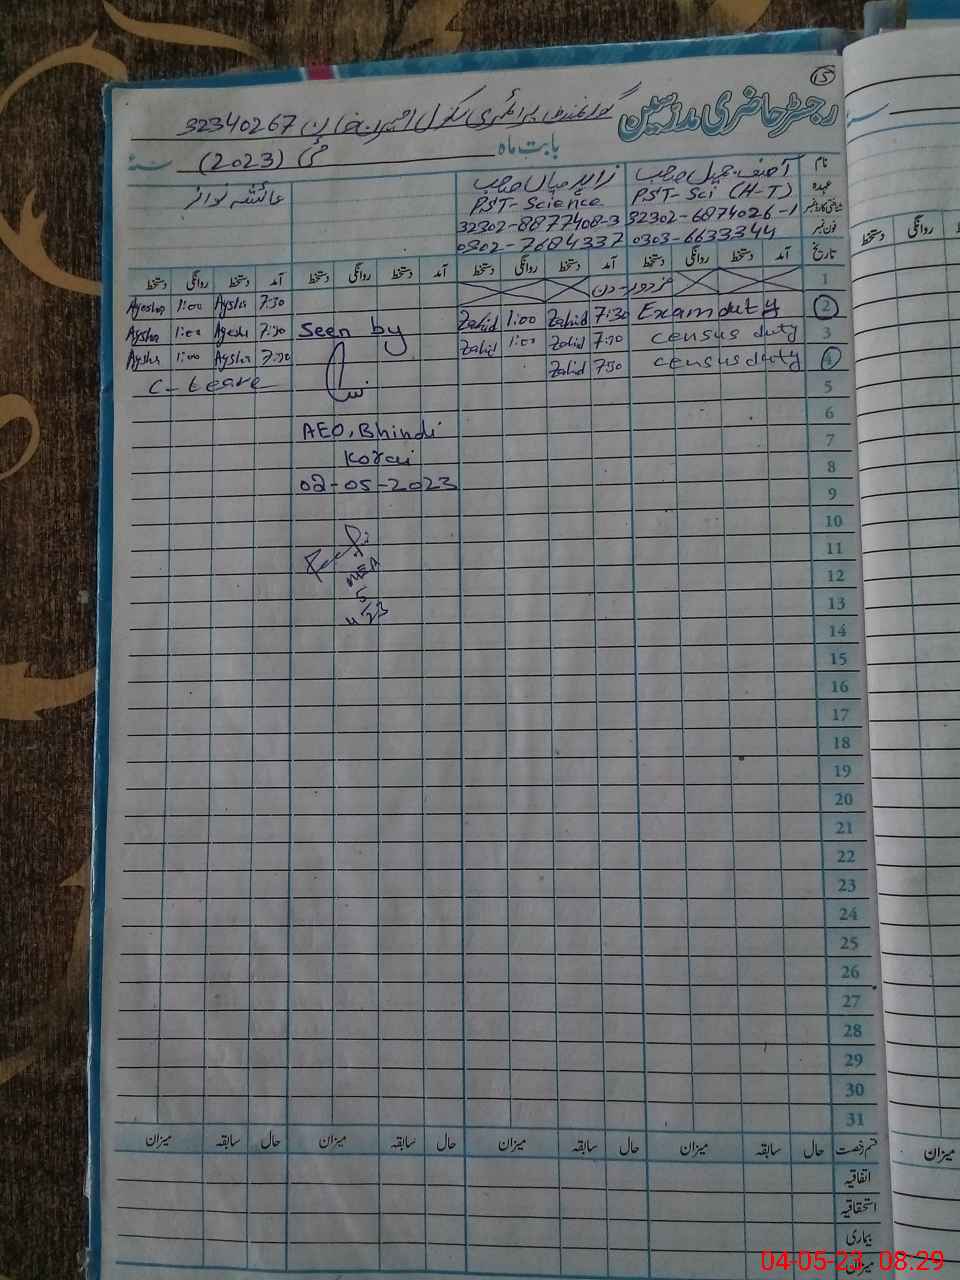 15
رجسٹر حاضری مدرسین
گورنمنٹ پرائمری سکول 32340267
بابت ماہ مئی (2023) سنہ
نام آصف جمیل صاحب زاہد میاں صاحب عائشہ نواز
عہدہ PST-Sci (H-T) PST-Science
شناختی کارڈ نمبر 32302-6874026-1 32302-8877408-3
فون نمبر 0303-6633344 0302-7684337
تاریخ آمد دستخط روانگی دستخط آمد دستخط روانگی دستخط آمد دستخط روانگی دستخط آمد دستخط روانگی دستخط
1 مزدور-دن
2 Exam duty 7:30 Zahid 1:00 Zahid 7:30 Aysha 1:00 Ayesha
3 census duty 7:30 Zahid 1:00 Zahid Seen by 7:30 Ayesha 1:00 Aysha
4 census duty 7:30 Zahid 7:30 Aysha 1:00 Aysha
5 C-Leave
6
7 AEO, Bhindi
8 Korai
9 02-05-2023
10
11
12 MEA
13
14
15
16
17
18
19
20
21
22
23
24
25
26
27
28
29
30
31
قسم رخصت حال سابقہ میزان حال سابقہ میزان حال سابقہ میزان حال سابقہ میزان
اتفاقیہ
استحقاقیہ
بیماری
میزان
سنہ
روانگی دستخط
میزان
04-05-23 08:29